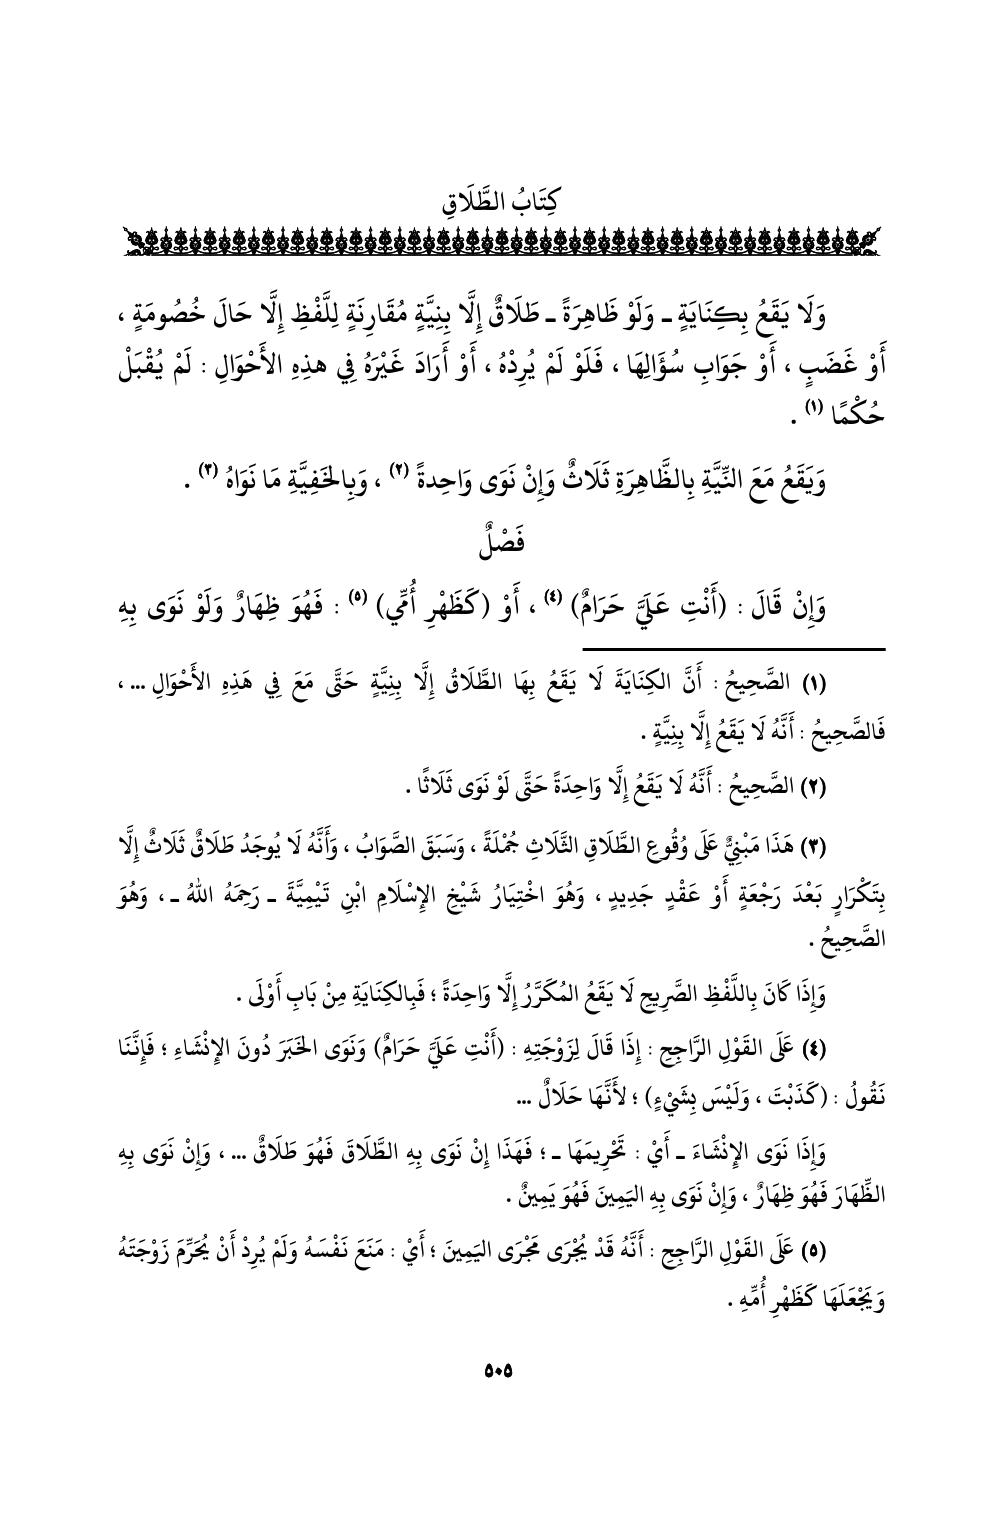 كِتَابُ الطَّلَاقِ
وَلَا يَقَعُ بِكِنَايَةٍ ـ وَلَوْ ظَاهِرَةً ـ طَلَاقٌ إِلَّا بِنِيَّةٍ مُقَارِنَةٍ لِلَّفْظِ إِلَّا حَالَ خُصُومَةٍ ،
أَوْ غَضَبٍ ، أَوْ جَوَابِ سُؤَالِهَا ، فَلَوْ لَمْ يُرِدْهُ ، أَوْ أَرَادَ غَيْرَهُ فِي هذِهِ الأَحْوَالِ : لَمْ يُقْبَلْ
حُكْمًا (١) .
وَيَقَعُ مَعَ النِّيَّةِ بِالظَّاهِرَةِ ثَلَاثٌ وَإِنْ نَوَى وَاحِدةً (٢) ، وَبِالخَفِيَّةِ مَا نَوَاهُ (٣) .
فَصْلٌ
وَإِنْ قَالَ : (أَنْتِ عَلَيَّ حَرَامٌ) (٤) ، أَوْ (كَظَهْرِ أُمِّي) (٥) : فَهُوَ ظِهَارٌ وَلَوْ نَوَى بِهِ
(١) الصَّحِيحُ : أَنَّ الكِنَايَةَ لَا يَقَعُ بِهَا الطَّلَاقُ إِلَّا بِنِيَّةٍ حَتَّى مَعَ فِي هَذِهِ الأَحْوَالِ ... ،
فَالصَّحِيحُ : أَنَّهُ لَا يَقَعُ إِلَّا بِنِيَّةٍ .
(٢) الصَّحِيحُ : أَنَّهُ لَا يَقَعُ إِلَّا وَاحِدَةً حَتَّى لَوْ نَوَى ثَلَاثًا .
(٣) هَذَا مَبْنِيٌّ عَلَى وُقُوعِ الطَّلَاقِ الثَّلَاثِ جُمْلَةً ، وَسَبَقَ الصَّوَابُ ، وَأَنَّهُ لَا يُوجَدُ طَلَاقٌ ثَلَاثٌ إِلَّا
بِتَكْرَارٍ بَعْدَ رَجْعَةٍ أَوْ عَقْدٍ جَدِيدٍ ، وَهُوَ اخْتِيَارُ شَيْخِ الإِسْلَامِ ابْنِ تَيْمِيَّةَ ـ رَحِمَهُ اللهُ ـ ، وَهُوَ
الصَّحِيحُ .
وَإِذَا كَانَ بِاللَّفْظِ الصَّرِيحِ لَا يَقَعُ المُكَرَّرُ إِلَّا وَاحِدَةً ؛ فَبِالكِنَايَةِ مِنْ بَابِ أَوْلَى .
(٤) عَلَى القَوْلِ الرَّاجِحِ : إِذَا قَالَ لِزَوْجَتِهِ : (أَنْتِ عَلَيَّ حَرَامٌ) وَنَوَى الخَبَرَ دُونَ الإِنْشَاءِ ؛ فَإِنَّنَا
نَقُولُ : (كَذَبْتَ ، وَلَيْسَ بِشَيْءٍ) ؛ لأَنَّهَا حَلَالٌ ...
وَإِذَا نَوَى الإِنْشَاءَ ـ أَيْ : تَحْرِيمَهَا ـ ؛ فَهَذَا إِنْ نَوَى بِهِ الطَّلَاقَ فَهُوَ طَلَاقٌ ... ، وَإِنْ نَوَى بِهِ
الظِّهَارَ فَهُوَ ظِهَارٌ ، وَإِنْ نَوَى بِهِ اليَمِينَ فَهُوَ يَمِينٌ .
(٥) عَلَى القَوْلِ الرَّاجِحِ : أَنَّهُ قَدْ يُجْرَى مَجْرَى اليَمِينَ ؛ أَيْ : مَنَعَ نَفْسَهُ وَلَمْ يُرِدْ أَنْ يُحَرِّمَ زَوْجَتَهُ
وَيَجْعَلَهَا كَظَهْرِ أُمِّهِ .
٥٠٥